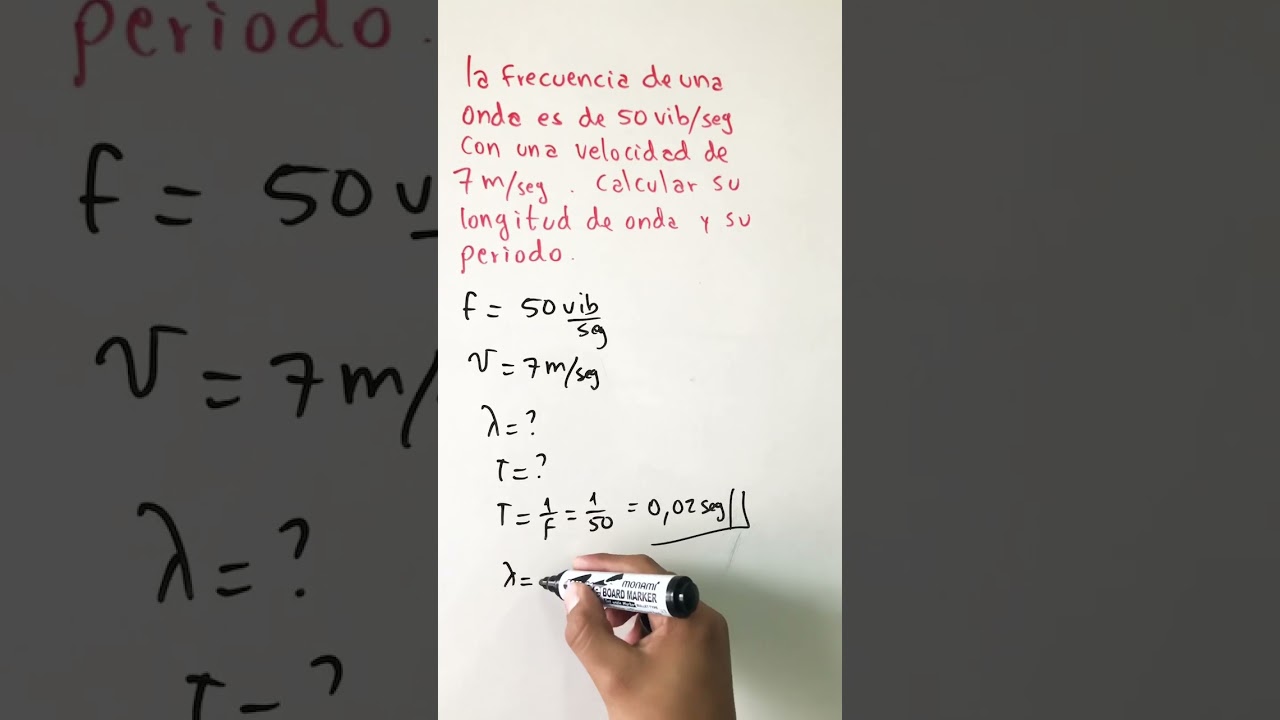 la frecuencia de una
onda es de 50 vib/seg
con una velocidad de
7 m/seg . Calcular su
longitud de onda y su
periodo.
f = 50 vib/seg
v = 7 m/seg
λ = ?
T = ?
T = 1/f = 1/50 = 0,02 seg
λ =
monami
BOARD MARKER
periodo.
f = 50 v
v = 7 m/
λ = ?
T = ?